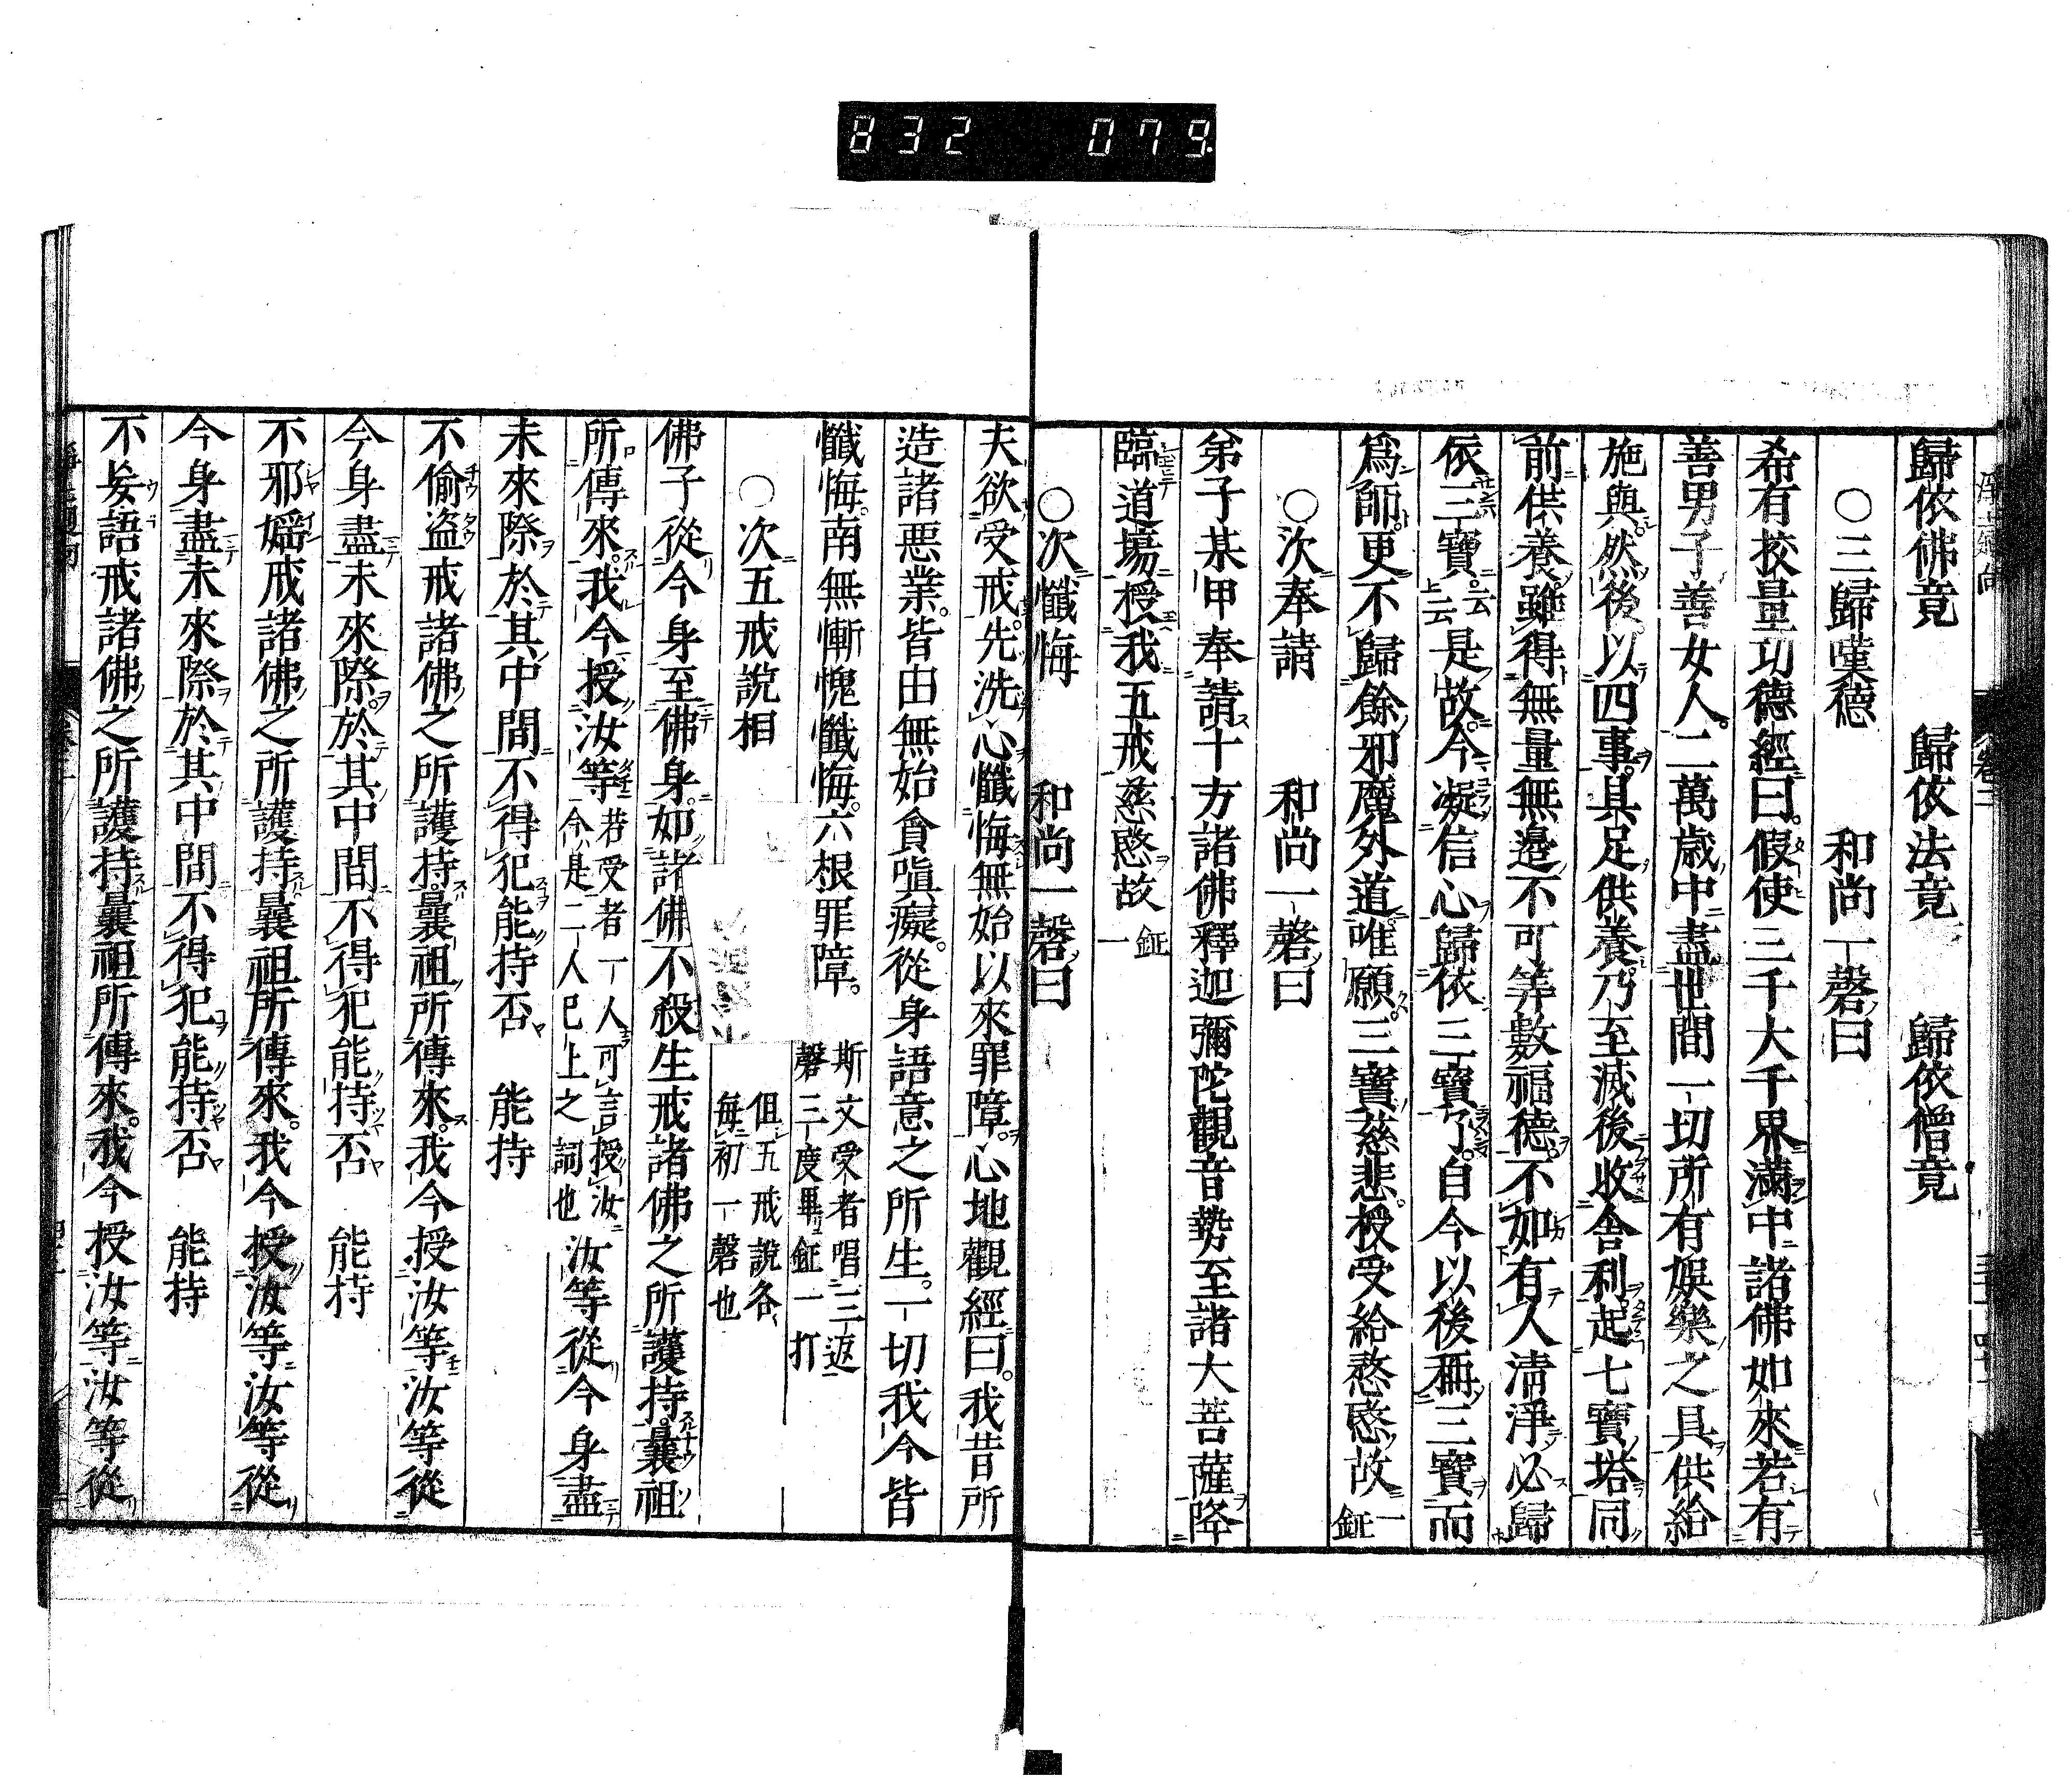 832 079
歸依佛竟 歸依法竟 歸依僧竟
○三歸嘆德 和尚一磬曰
希有挍量功德經曰假使三千大千界滿中諸佛如來若有
善男子善女人二萬歲中盡世間一切所有娯樂之具供給
施與然後以四事具足供養乃至滅後收舍利起七寶塔同
前供養雖得無量無邊不可等數福德不如有人淸淨必歸
依三寶云云是故今凝信心歸依三寶了自今以後稱三寶而
爲師更不歸餘邪魔外道唯願三寶慈悲授受給愍故 鉦一
○次奉請 和尚一磬曰
弟子某甲奉請十方諸佛釋迦彌陀觀音勢至諸大菩薩降
臨道塲授我五戒慈愍故 鉦一
○次懺悔 和尚一磬曰
夫欲受戒先洗心懺悔無始以來罪障心地觀經曰我昔所
造諸悪業皆由無始貪嗔癡從身語意之所生一切我今皆
懺悔南無慚愧懺悔六根罪障 斯文受者唱三返磬三度畢鉦一打
○次五戒說相 但五戒說各每初一磬也
佛子從今身至佛身如諸佛不殺生戒諸佛之所護持曩祖
所傳來我今授汝等 若受者一人可言授汝今是二人已上之詞也 汝等從今身盡
未來際於其中間不得犯能持否 能持
不偷盗戒諸佛之所護持曩祖所傳來我今授汝等汝等從
今身盡未來際於其中間不得犯能持否 能持
不邪婬戒諸佛之所護持曩祖所傳來我今授汝等汝等從
今身盡未來際於其中間不得犯能持否 能持
不妄語戒諸佛之所護持曩祖所傳來我今授汝等汝等從